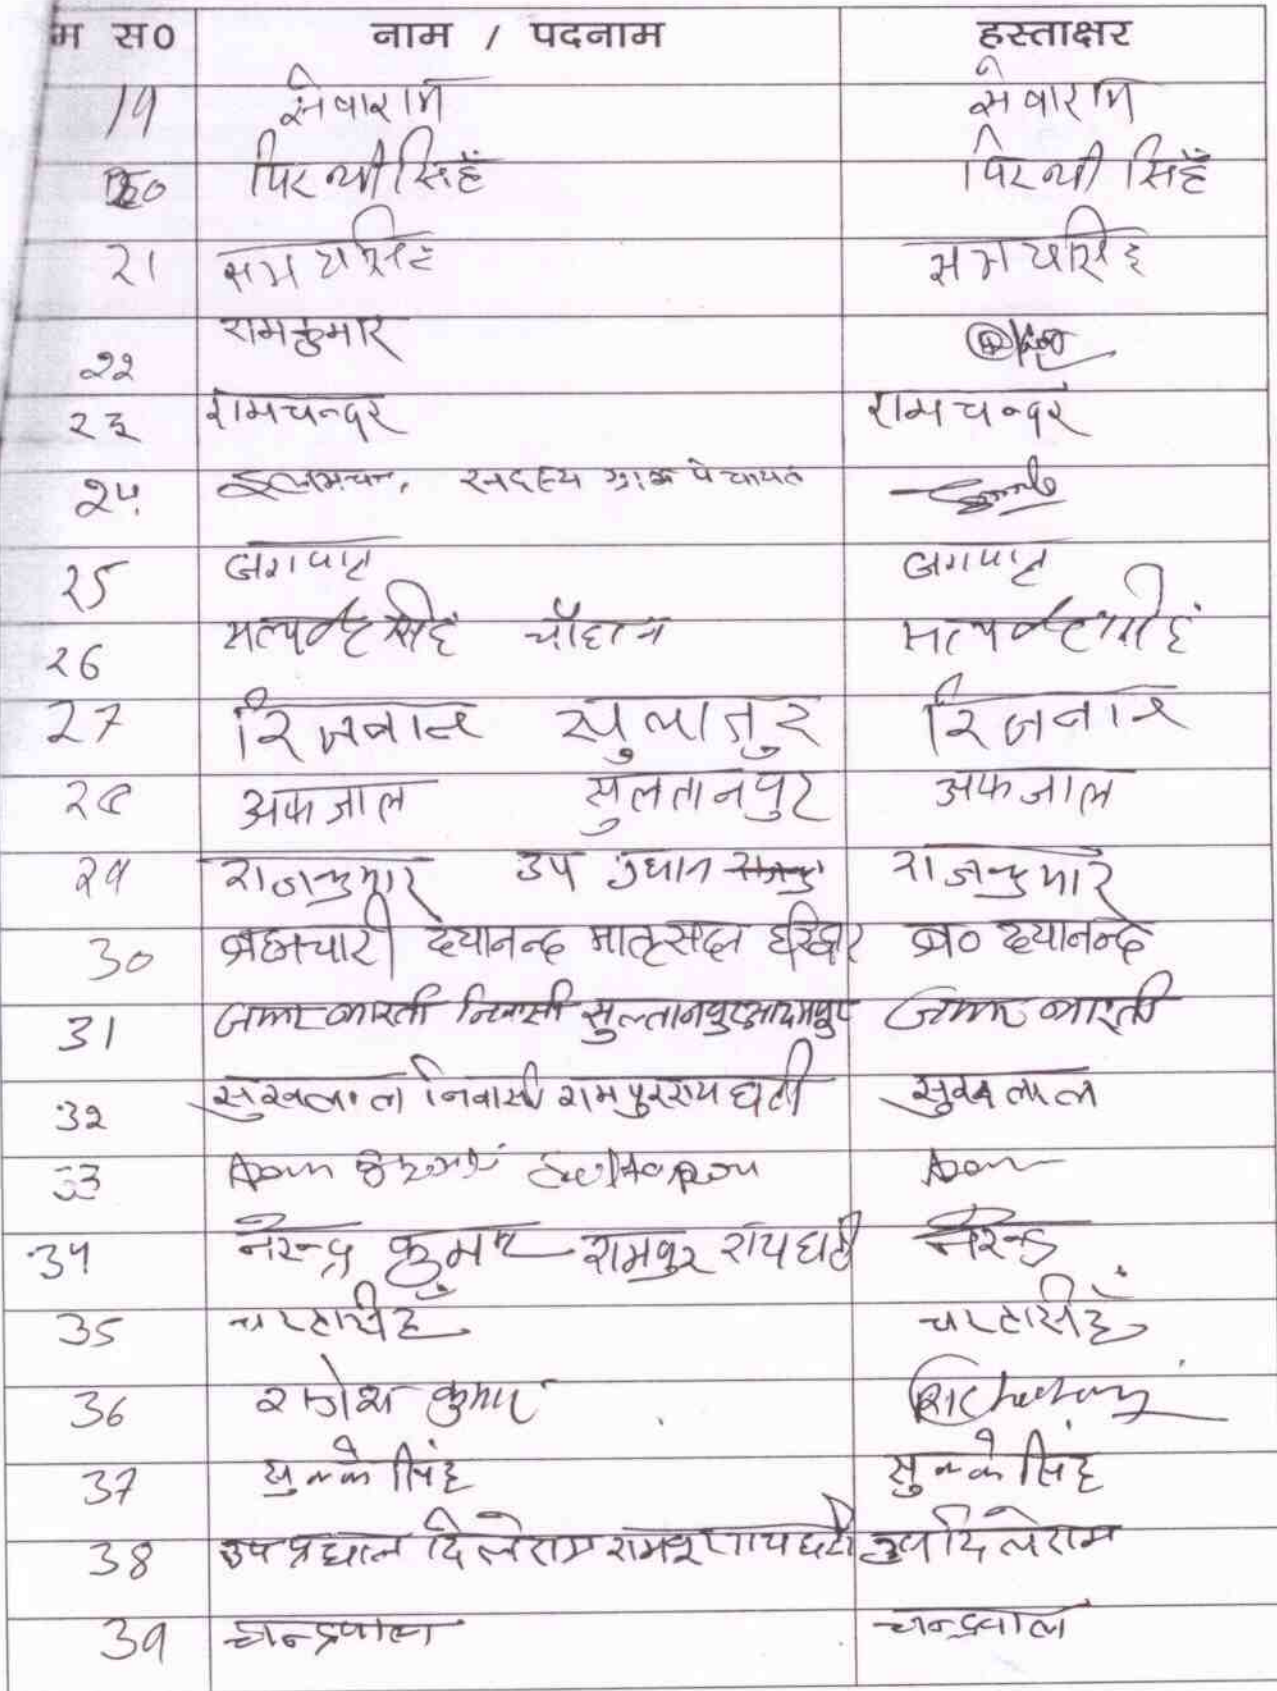 म स0 नाम / पदनाम हस्ताक्षर
19 सेवाराम सेवाराम
20 पिरथी सिहँ पिरथी सिहँ
21 समयसिह समयसिह
22 रामकुमार
23 रामचन्दर रामचन्दर
24 सदस्य ग्राम पंचायत
25 जगपाल जगपाल
26 सिहं चौहान
27 रिजवान सुलातुर रिजवान
28 अफजाल सुलतानपुर अफजाल
29 राजकुमार उप प्रधान राजकुमार
30 ब्रह्मचारी दयानन्द मातृसदन हरिद्वार ब्र0 दयानन्द
31 भारती निवासी सुल्तानपुर आदमपुर भारती
32 सुखलाल निवासी रामपुर राय घटी सुखलाल
33
34 नरेन्द्र कुमार रामपुर राय घाटी नरेन्द्र
35
36 कुमार
37 सिंह सिंह
38 उप प्रधान दिलेराम रामपुर राय घटी दिलेराम
39 चन्द्रपाल चन्द्रपाल